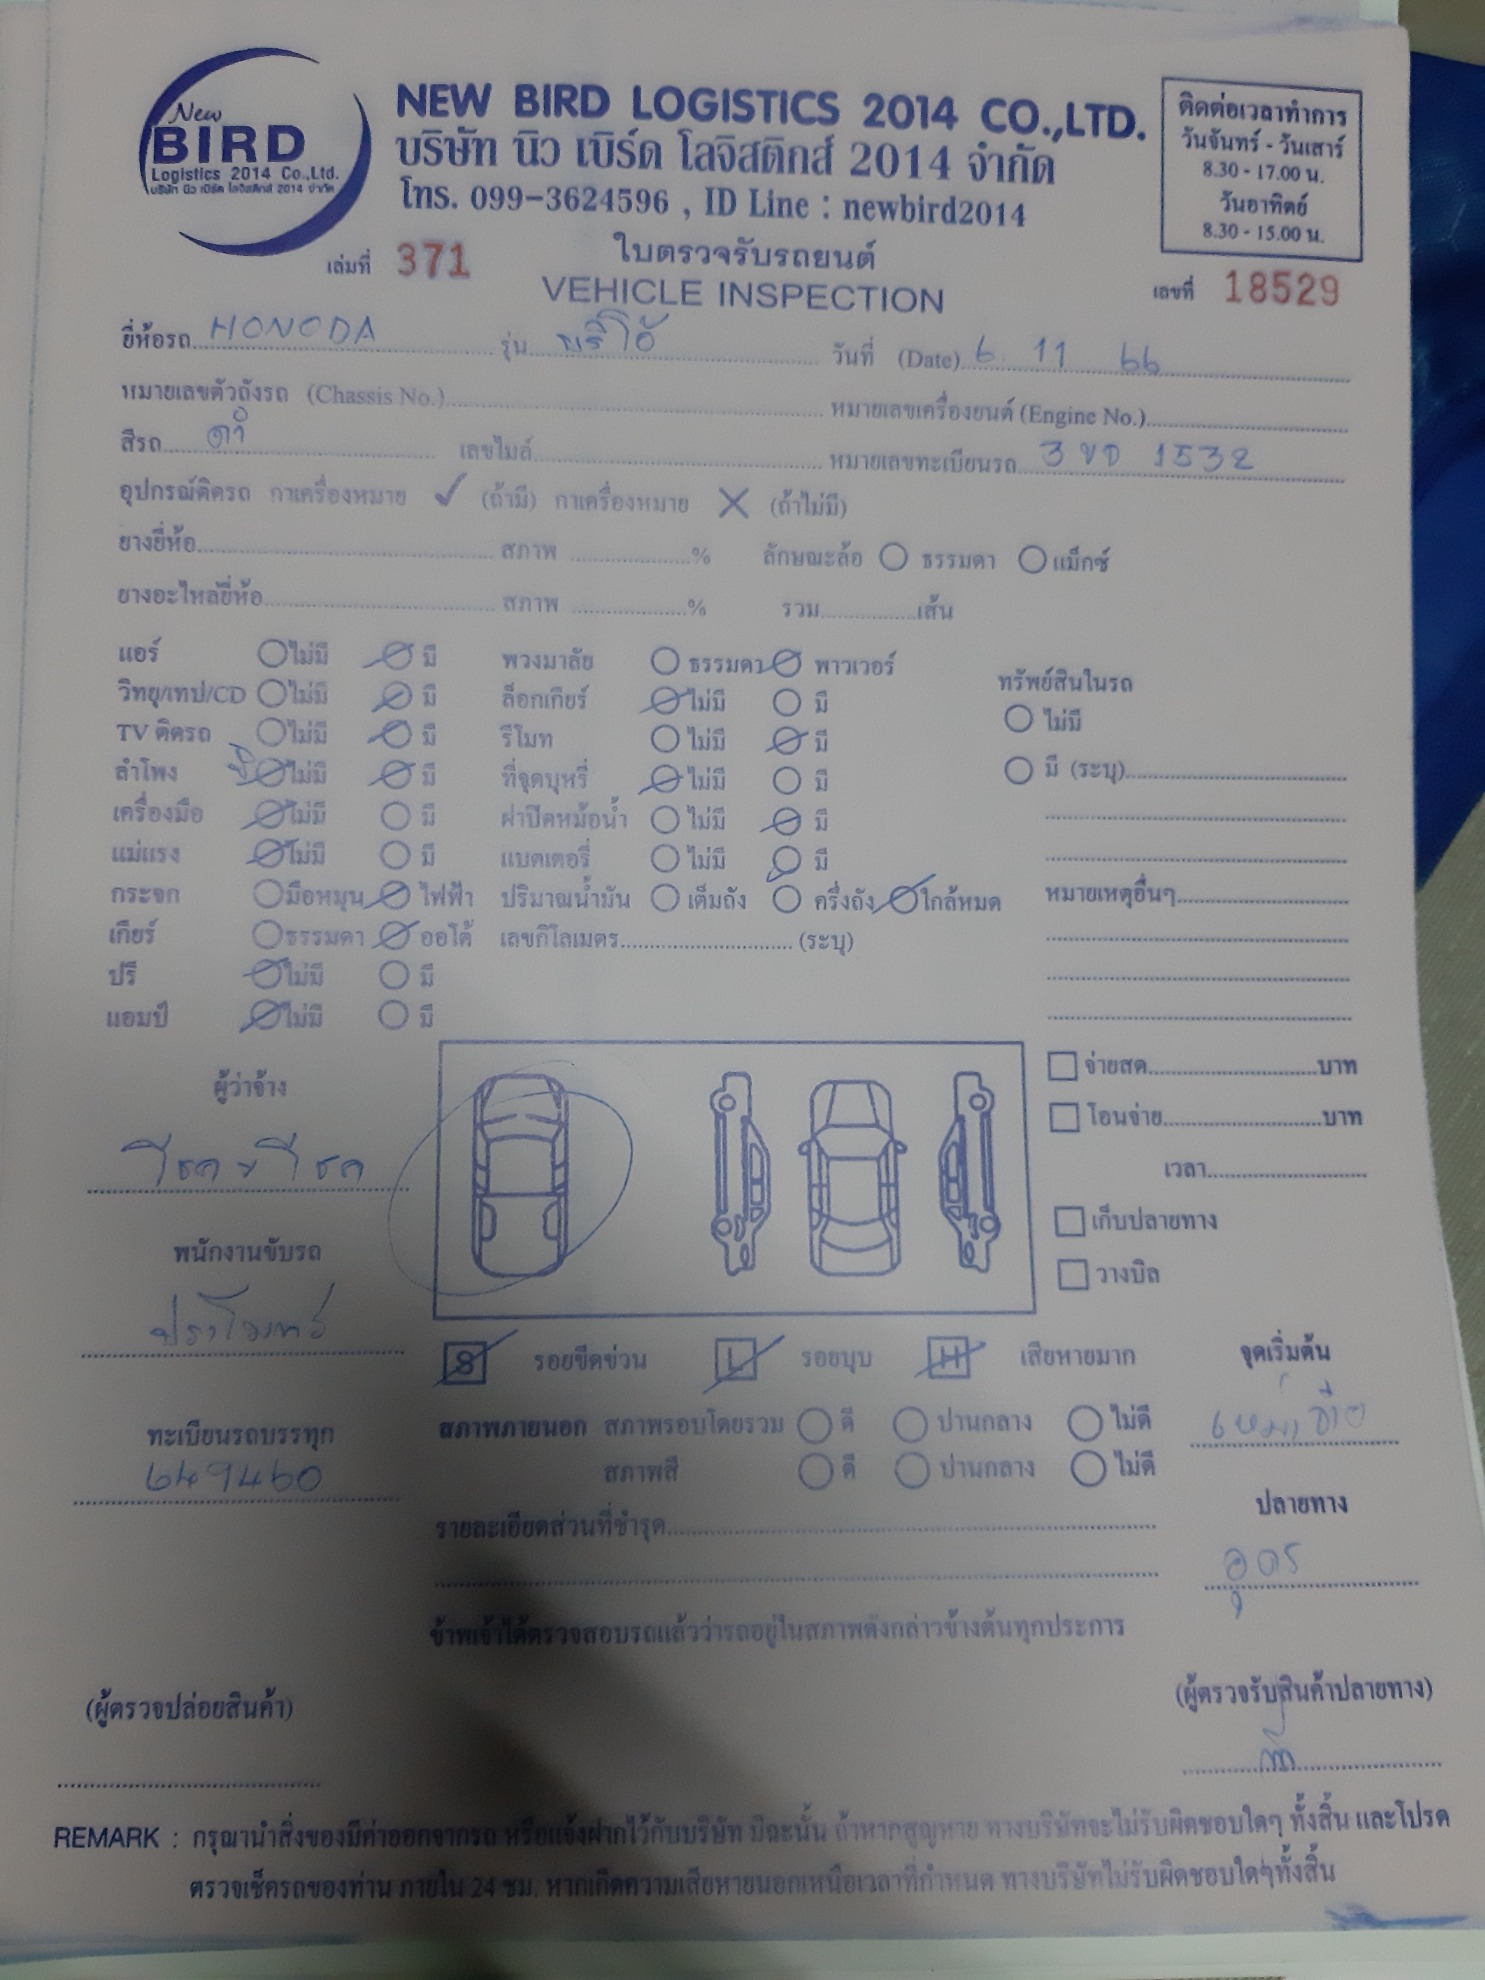 New
BIRD
Logistics 2014 Co.,Ltd.
บริษัท นิว เบิร์ด โลจิสติกส์ 2014 จำกัด
NEW BIRD LOGISTICS 2014 CO.,LTD.
บริษัท นิว เบิร์ด โลจิสติกส์ 2014 จำกัด
โทร. 099-3624596 , ID Line : newbird2014
ติดต่อเวลาทำการ
วันจันทร์ - วันเสาร์
8.30 - 17.00 น.
วันอาทิตย์
8.30 - 15.00 น.
เล่มที่ 371
ใบตรวจรับรถยนต์
VEHICLE INSPECTION
เลขที่ 18529
ยี่ห้อรถ HONODA รุ่น บรีโอ้ วันที่ (Date) 6 11 66
หมายเลขตัวถังรถ (Chassis No.) หมายเลขเครื่องยนต์ (Engine No.)
สีรถ ดำ เลขไมล์ หมายเลขทะเบียนรถ 3 ขD 1532
อุปกรณ์ติดรถ กาเครื่องหมาย ✓ (ถ้ามี) กาเครื่องหมาย ✕ (ถ้าไม่มี)
ยางยี่ห้อ สภาพ % ลักษณะล้อ ธรรมดา แม็กซ์
ยางอะไหล่ยี่ห้อ สภาพ % รวม เส้น
แอร์ ไม่มี มี พวงมาลัย ธรรมดา พาวเวอร์
วิทยุ/เทป/CD ไม่มี มี ล็อกเกียร์ ไม่มี มี
TV ติดรถ ไม่มี มี รีโมท ไม่มี มี
ลำโพง ไม่มี มี ที่จุดบุหรี่ ไม่มี มี
เครื่องมือ ไม่มี มี ฝาปิดหม้อน้ำ ไม่มี มี
แม่แรง ไม่มี มี แบตเตอรี่ ไม่มี มี
กระจก มือหมุน ไฟฟ้า ปริมาณน้ำมัน เต็มถัง ครึ่งถัง ใกล้หมด
เกียร์ ธรรมดา ออโต้ เลขกิโลเมตร (ระบุ)
ปรี ไม่มี มี
แอมป์ ไม่มี มี
ทรัพย์สินในรถ
ไม่มี
มี (ระบุ)
หมายเหตุอื่นๆ
ผู้ว่าจ้าง
พนักงานขับรถ
ปราโมทร์
ทะเบียนรถบรรทุก
649460
จ่ายสด บาท
โอนจ่าย บาท
เวลา
เก็บปลายทาง
วางบิล
S รอยขีดข่วน L รอยบุบ H เสียหายมาก
สภาพภายนอก สภาพรอบโดยรวม ดี ปานกลาง ไม่ดี
สภาพสี ดี ปานกลาง ไม่ดี
รายละเอียดส่วนที่ชำรุด
จุดเริ่มต้น
ปลายทาง
อุดร
ข้าพเจ้าได้ตรวจสอบรถแล้วว่ารถอยู่ในสภาพดังกล่าวข้างต้นทุกประการ
(ผู้ตรวจปล่อยสินค้า)
(ผู้ตรวจรับสินค้าปลายทาง)
REMARK : กรุณานำสิ่งของมีค่าออกจากรถ หรือแจ้งฝากไว้กับบริษัท มิฉะนั้น ถ้าหากสูญหาย ทางบริษัทจะไม่รับผิดชอบใดๆ ทั้งสิ้น และโปรด
ตรวจเช็ครถของท่าน ภายใน 24 ชม. หากเกิดความเสียหายนอกเหนือเวลาที่กำหนด ทางบริษัทไม่รับผิดชอบใดๆทั้งสิ้น